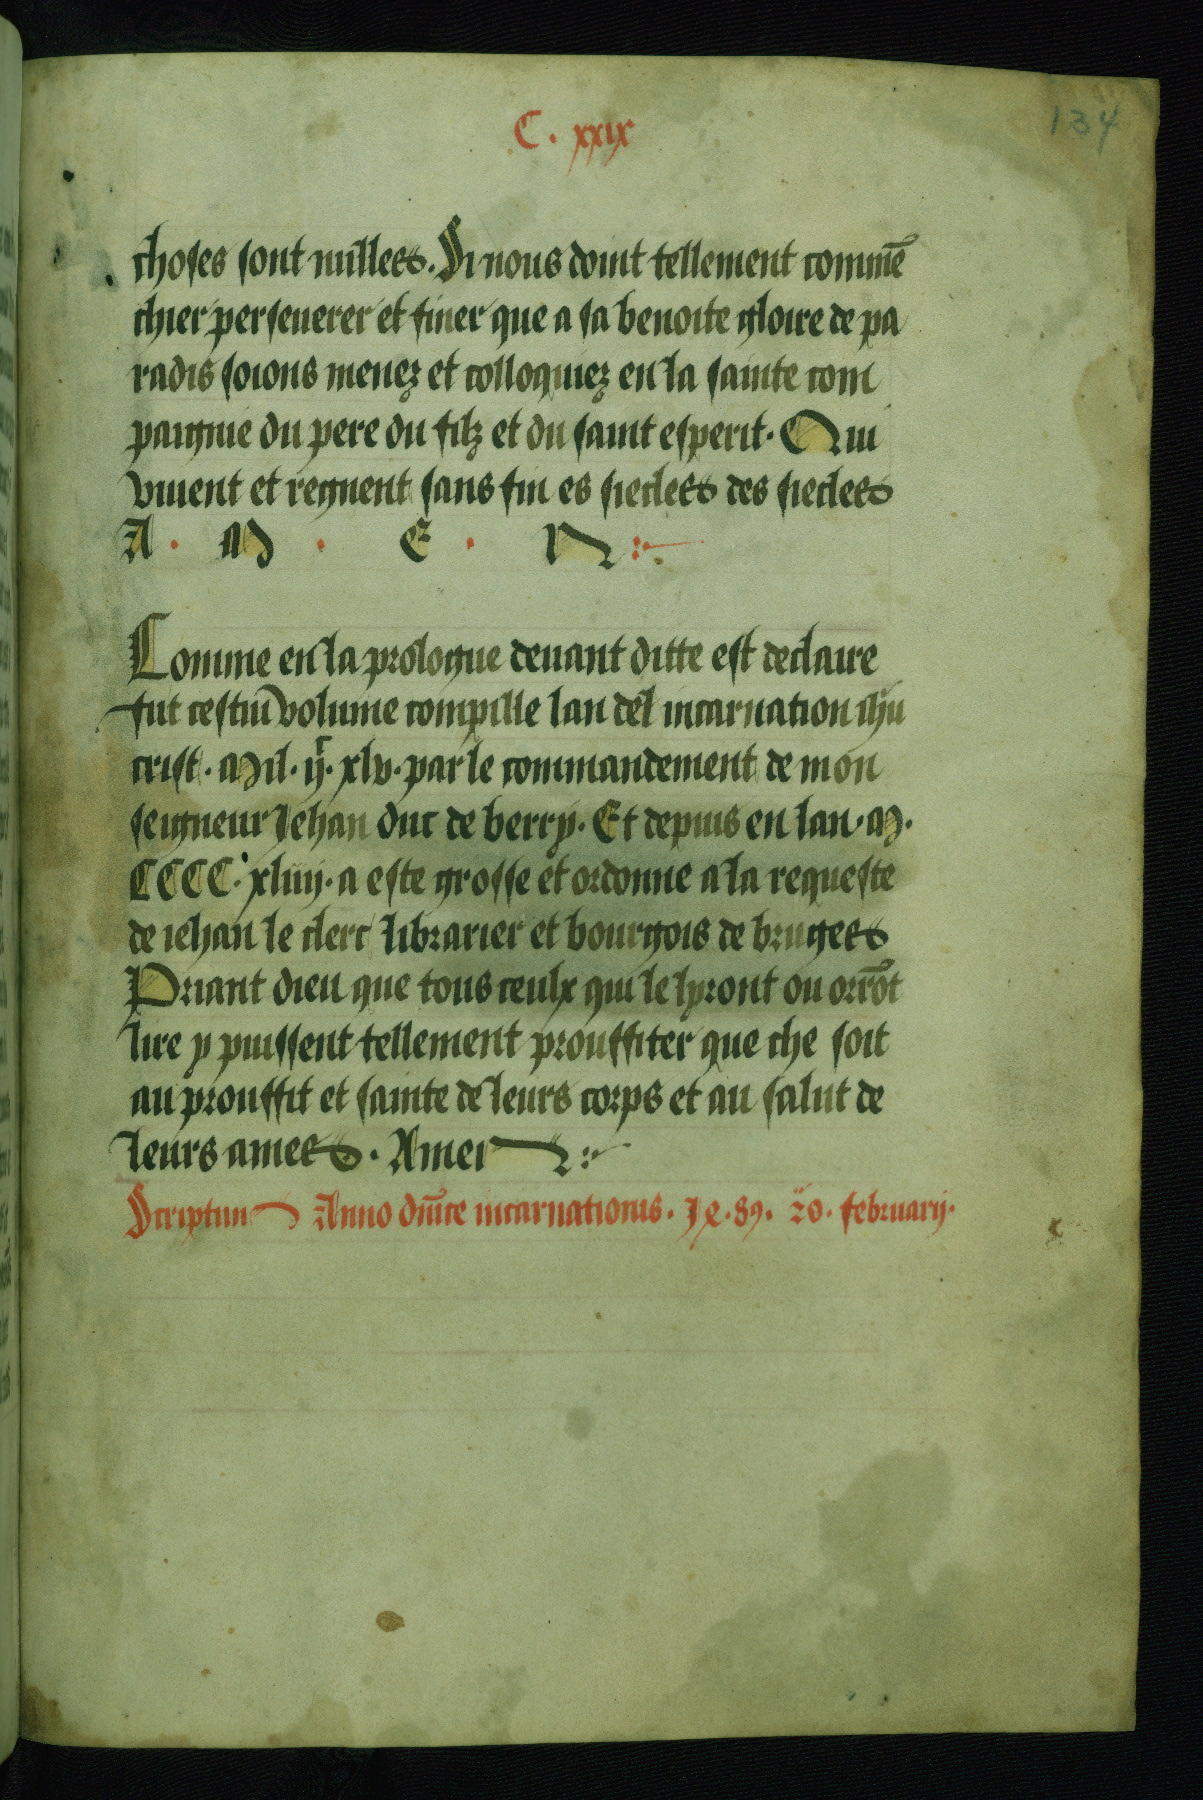 C. xxix
134
choses sont nulles. Si nous doint tellement commē
chier perseuerer et finer que a sa benoite gloire de pa
radis soions menez et colloquiez en la sainte com
paignie du pere du filz et du saint esperit. Qui
viuent et regnent sans fin es siecles des siecles
A. M. E. N
Comme en la prologue deuant ditte est declaire
fut cestui volume compille lan del incarnation ihū
crist. Mil. iijᶜ. xlv. par le commandement de mon
seigneur Jehan duc de berry. Et depuis en lan. M.
CCCC. xliiij. a este grosse et ordonne a la requeste
de iehan le clerc librarier et bourgois de bruges
Priant dieu que tous ceulx qui le lyront ou orrōt
lire y puissent tellement prouffiter que che soit
au prouffit et sainte de leurs corps et au salut de
leurs ames. Amen
Scriptum Anno dn̄ice incarnationis. 1489. 20. februarij.